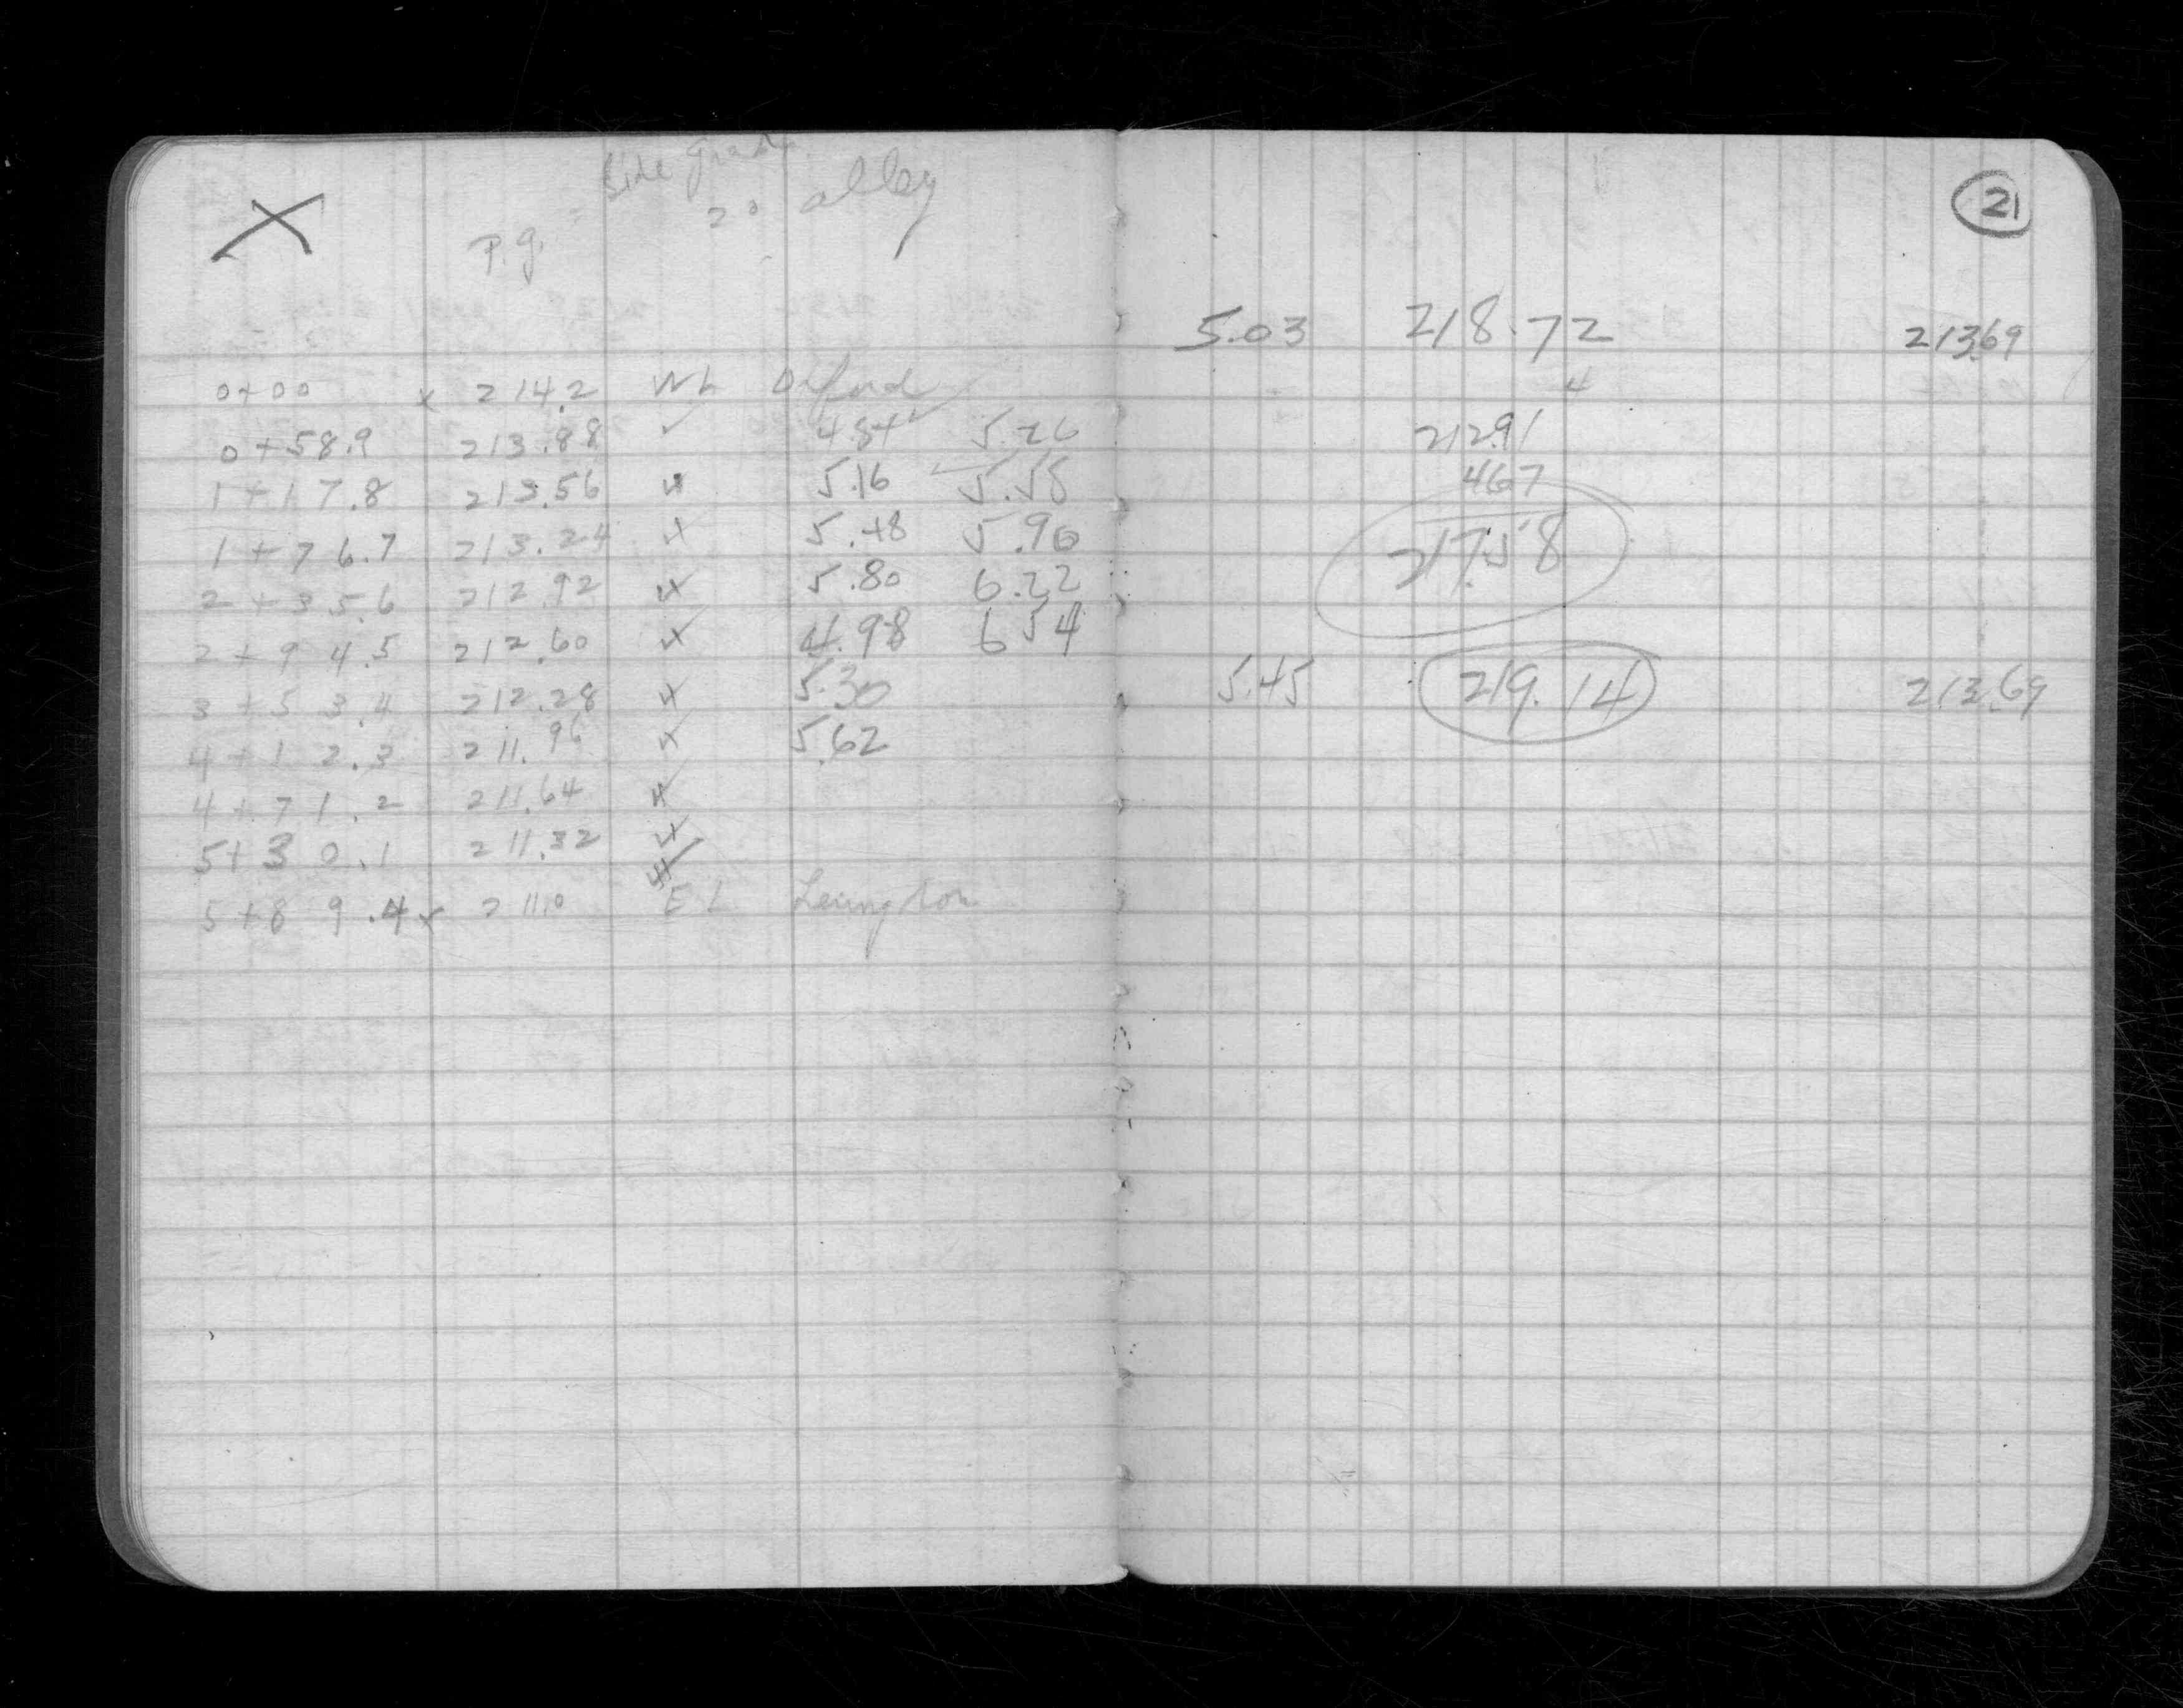 Side Grade
X
20 alley
P.g. =
0+00 x 214.2 WL Oxford
0+58.9 213.88 ✓ 4.84 ✓ 5.26
1+17.8 213.56 5.16 5.58
1+76.7 213.24 5.48 5.90
2+35.6 212.92 5.80 6.22
2+94.5 212.60 4.98 6 54
3+53.4 212.28 5.30
4+12.3 211.96 5.62
4+71.2 211.64
5+30.1 211.32
5+89.4 x 211.0 EL Lexington
21
5.03 218.72 213.69
4
212.91
4.67
217.58
5.45 219.14 213.69